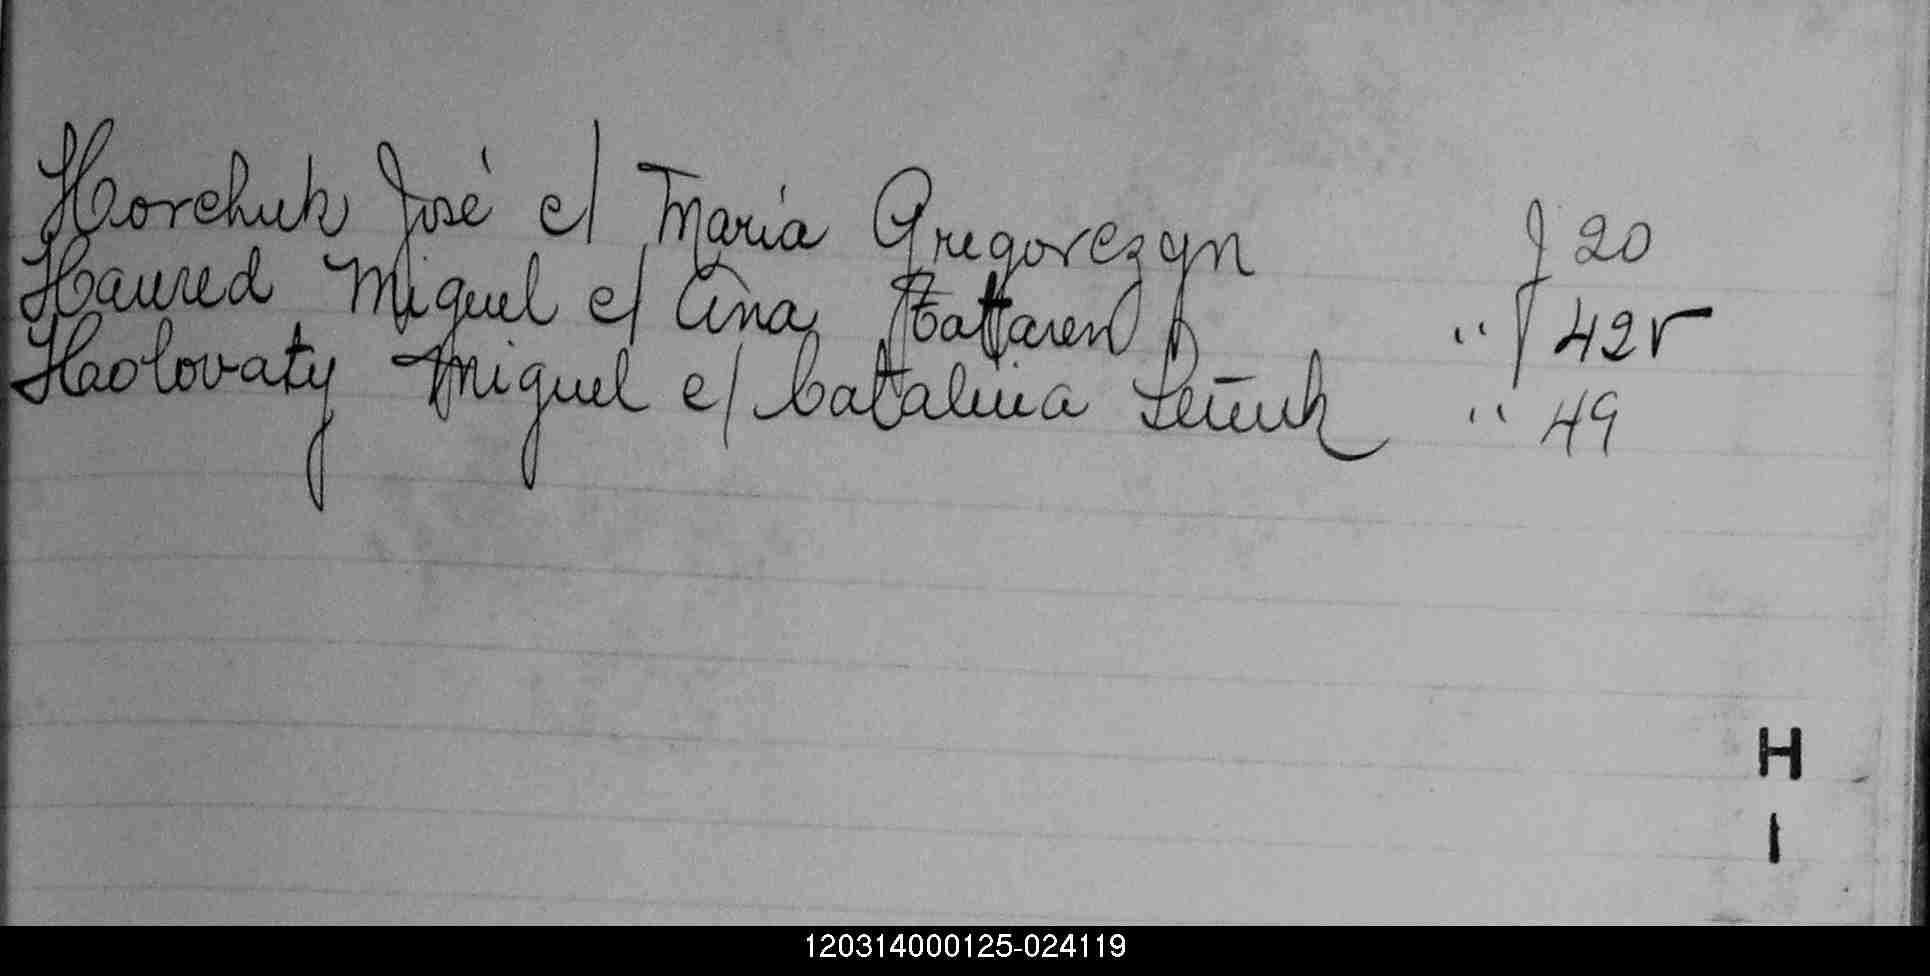 Horchuk José c/ María Gregorczyn f 20
Haured Miguel c/ Ana " f 42 r
Holovaty Miguel c/ Catalina " 49
H
I
120314000125-024119